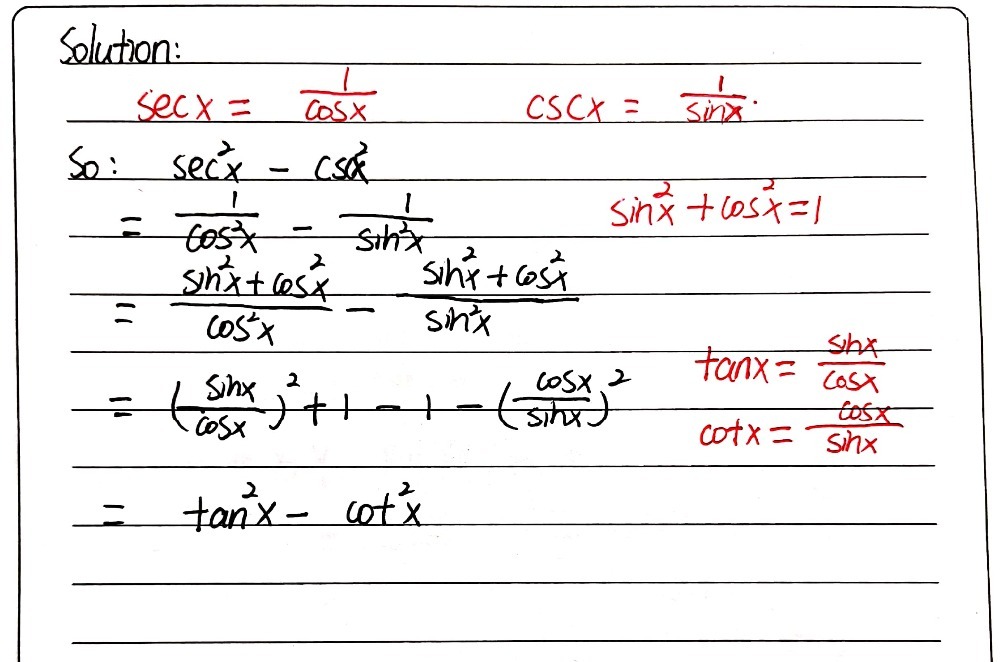 Solution:
sec x = 1/cosx    csc x = 1/sinx.
So: sec²x - csc²x
= 1/cos²x - 1/sin²x    sin²x + cos²x = 1
= (sin²x + cos²x)/cos²x - (sin²x + cos²x)/sin²x
= (sinx/cosx)² + 1 - 1 - (cosx/sinx)²    tanx = sinx/cosx
cotx = cosx/sinx
= tan²x - cot²x